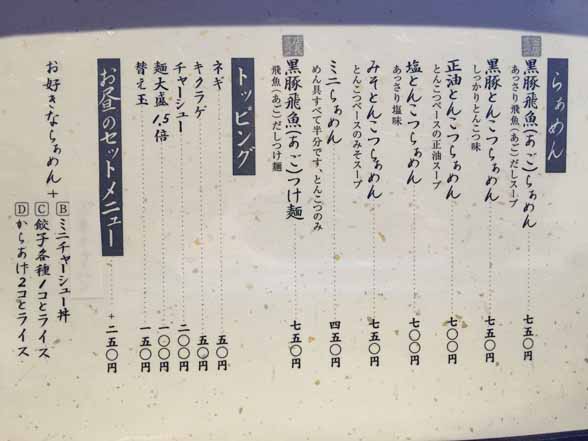 らぁめん
黒豚飛魚(あご)らぁめん 七五〇円
あっさり飛魚(あご)だしスープ
黒豚とんこつらぁめん 七五〇円
しっかりとんこつ味
正油とんこつらぁめん 七〇〇円
とんこつベースの正油スープ
塩とんこつらぁめん 七〇〇円
あっさり塩味
みそとんこつらぁめん 七五〇円
とんこつベースのみそスープ
ミニらぁめん 四五〇円
めん具すべて半分です、とんこつのみ
黒豚飛魚(あご)つけ麺 七五〇円
飛魚(あご)だしつけ麺
トッピング
ネギ 五〇円
キクラゲ 五〇円
チャーシュー 二〇〇円
麺大盛1.5倍 一〇〇円
替え玉 一五〇円
お昼のセットメニュー +二五〇円
お好きならぁめん+
Bミニチャーシュー丼
C餃子各種1コとライス
Dからあげ2コとライス